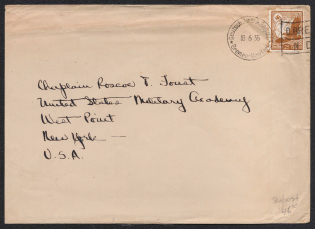 Chaplain Roscoe T. Foust
United States Military Academy
West Point
New York
U.S.A.